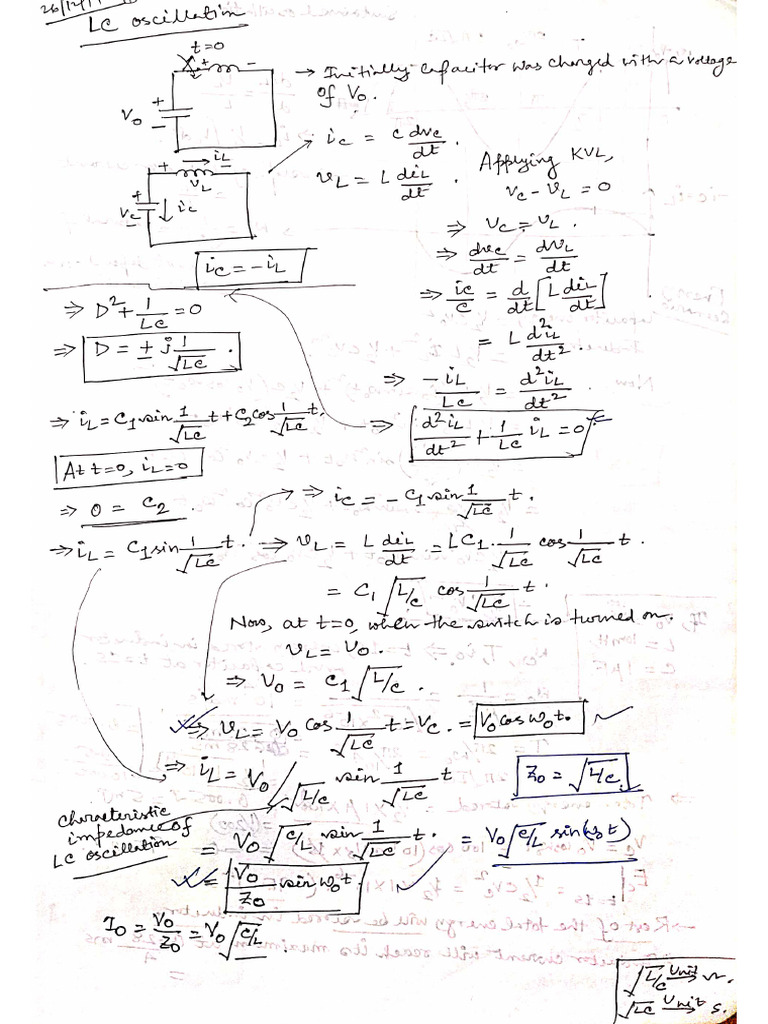 26/12/
LC oscillation
t=0
+ -
V₀ + -
→ Initially capacitor was charged with a voltage
of V₀.
+ → i_L -
v_L
V_C + - ↓ i_C
i_C = C dv_C/dt.
v_L = L di_L/dt.
Applying KVL,
v_C - v_L = 0
⇒ v_C = v_L.
⇒ dv_C/dt = dv_L/dt
⇒ i_C/C = d/dt [L di_L/dt]
= L d²i_L/dt².
⇒ -i_L/LC = d²i_L/dt².
⇒ d²i_L/dt² + 1/LC i_L = 0
i_C = -i_L
⇒ D² + 1/LC = 0
⇒ D = ± j 1/√LC.
⇒ i_L = C₁ sin 1/√LC t + C₂ cos 1/√LC t.
At t=0, i_L=0
⇒ 0 = C₂.
⇒ i_C = -C₁ sin 1/√LC t.
⇒ i_L = C₁ sin 1/√LC t. ⇒ v_L = L di_L/dt = LC₁. 1/√LC cos 1/√LC t.
= C₁ √L/C cos 1/√LC t.
Now, at t=0, when the switch is turned on.
v_L = V₀.
⇒ V₀ = C₁ √L/C.
⇒ v_L = V₀ cos 1/√LC t = V_C. = V₀ cos ω₀t.
⇒ i_L = V₀/√L/C sin 1/√LC t
Z₀ = √L/C
Characteristic
impedance of
LC oscillation
= V₀ √C/L sin 1/√LC t. = V₀ √C/L sin(ω₀t)
= V₀/Z₀ sin ω₀t.
I₀ = V₀/Z₀ = V₀ √C/L
√L/C Unit → Ω.
√LC Unit → s.